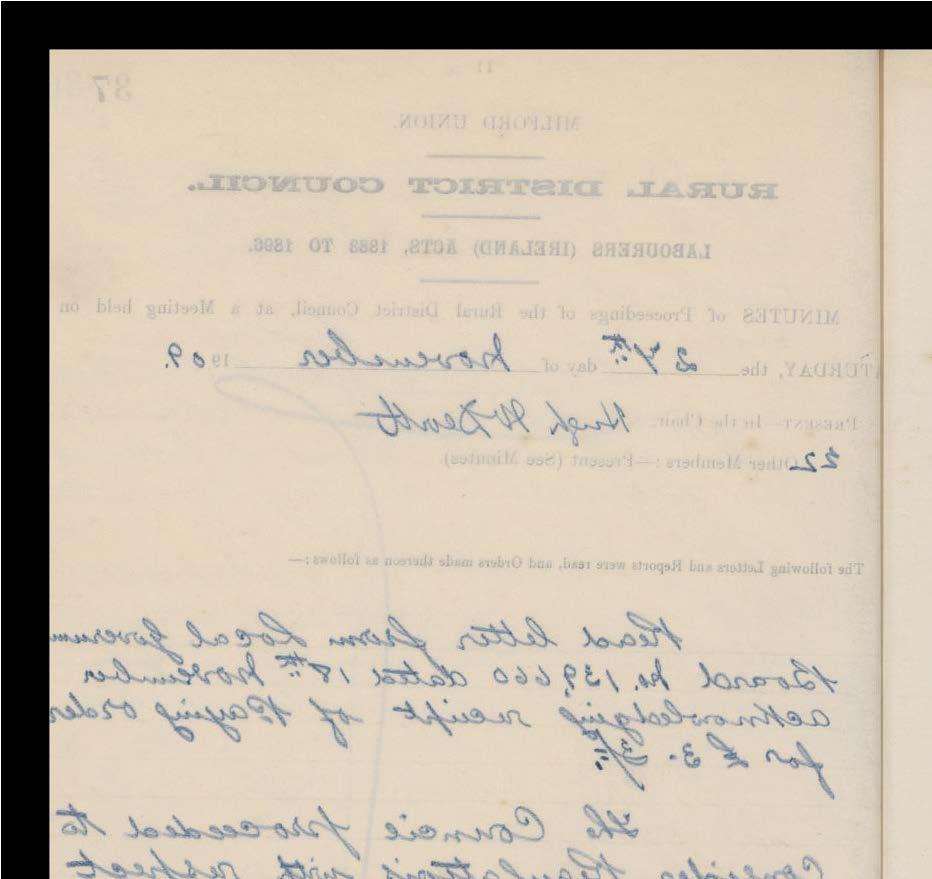 11
37
MILFORD UNION.
RURAL DISTRICT COUNCIL.
LABOURERS (IRELAND) ACTS, 1883 TO 1896.
MINUTES of Proceedings of the Rural District Council, at a Meeting held on
ATURDAY, the 27th day of November 1909.
PRESENT—In the Chair. Hugh McDevitt
22 Other Members:—Present (See Minutes)
The following Letters and Reports were read, and Orders made thereon as follows:—
Read letter from Local Governm
Board No. 139,660 dated 18th November
acknowledging receipt of Paying Order
for £3.
The Council proceeded to
Consider Regulations with respect